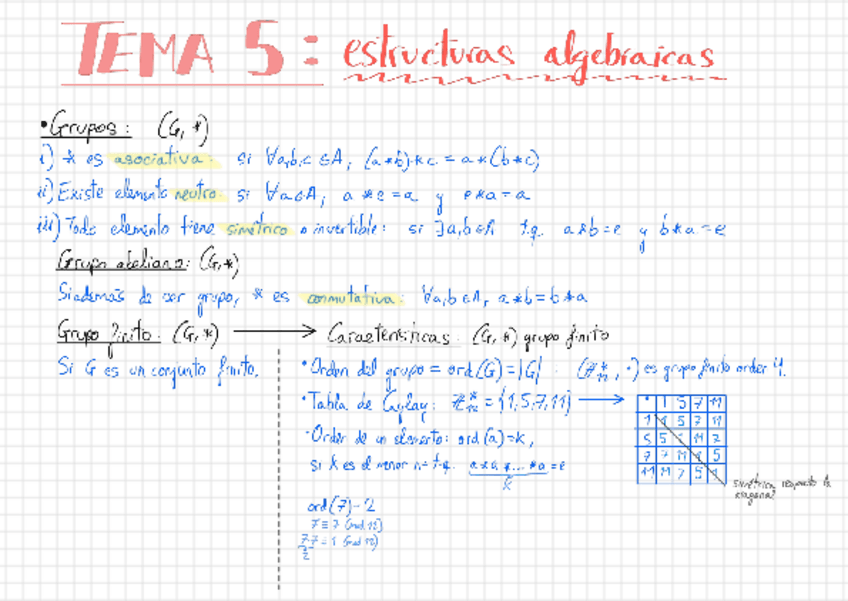 TEMA 5: estructuras algebraicas
• Grupos: (G, *)
i) * es asociativa: si ∀a,b,c ∈ A, (a*b)*c = a*(b*c)
ii) Existe elemento neutro: si ∀a∈A, a*e=a y e*a=a
iii) Todo elemento tiene simétrico o invertible: si ∃a,b∈A t.q. a*b=e y b*a=e
Grupo abeliano: (G,*)
Si además de ser grupo, * es conmutativa: ∀a,b∈A, a*b=b*a
Grupo finito: (G,*) → Características: (G,*) grupo finito
Si G es un conjunto finito.
• Orden del grupo = ord(G)=|G|. (ℤ*₁₂, ·) es grupo finito order 4.
• Tabla de Cayley: ℤ*₁₂ = {1,5,7,11} →
· 1 5 7 11
1 1 5 7 11
5 5 1 11 7
7 7 11 1 5
11 11 7 5 1
simétrica respecto la diagonal
· Orden de un elemento: ord(a)=k,
si k es el menor n t.q. a*a*...*a=e
k
ord(7)=2
7 ≡ 7 (mod 12)
7·7 = 1 (mod 12)
2